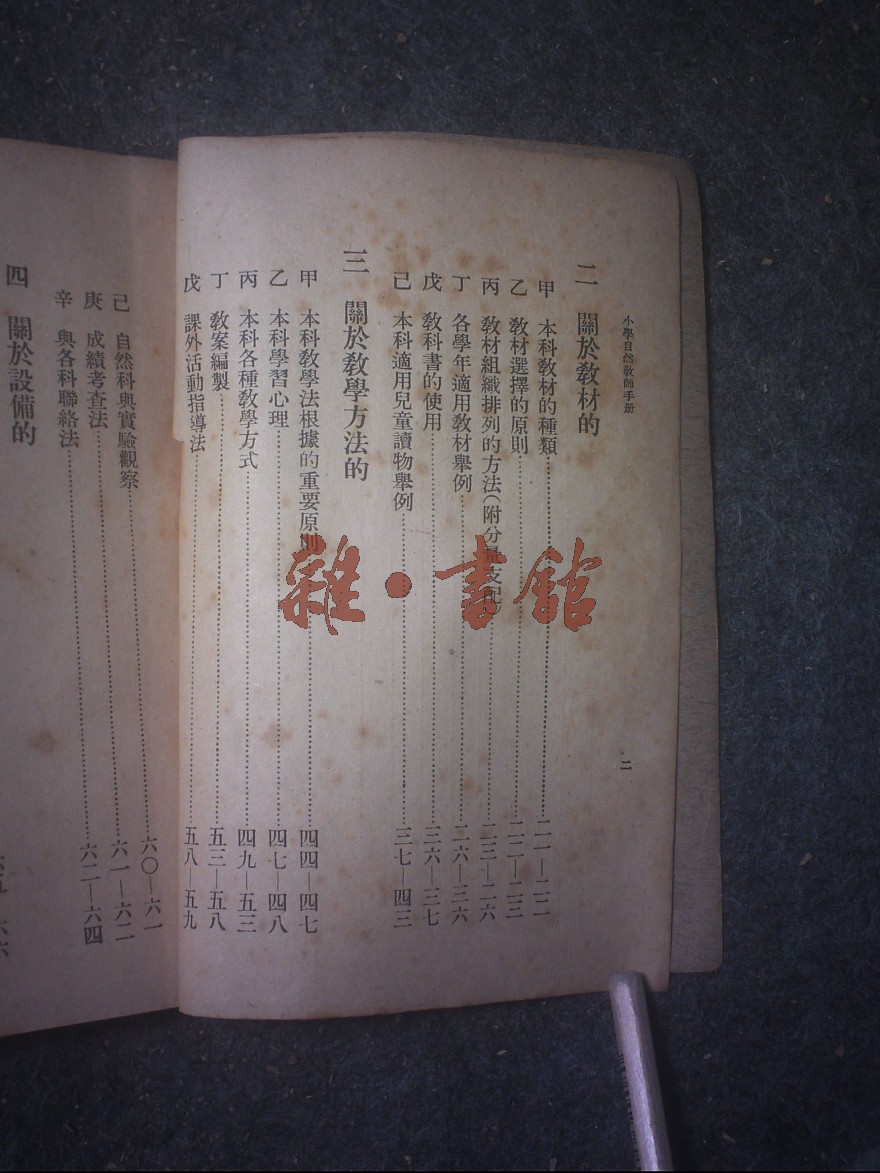 小學自然敎師手册
二
二 關於敎材的
甲 本科敎材的種類……二一—二二
乙 敎材選擇的原則……二二—二三
丙 敎材組織排列的方法(附分量支配)……二三—二六
丁 各學年適用敎材舉例……二六—三六
戊 敎科書的使用……三六—三七
己 本科適用兒童讀物舉例……三七—四三
三 關於敎學方法的
甲 本科敎學法根據的重要原則……四四—四七
乙 本科學習心理……四七—四八
丙 本科各種敎學方式……四九—五三
丁 敎案編製……五三—五八
戊 課外活動指導法……五八—五九
己 自然科與實驗觀察……六〇—六一
庚 成績考查法……六一—六二
辛 與各科聯絡法……六二—六四
四 關於設備的
雜·書館